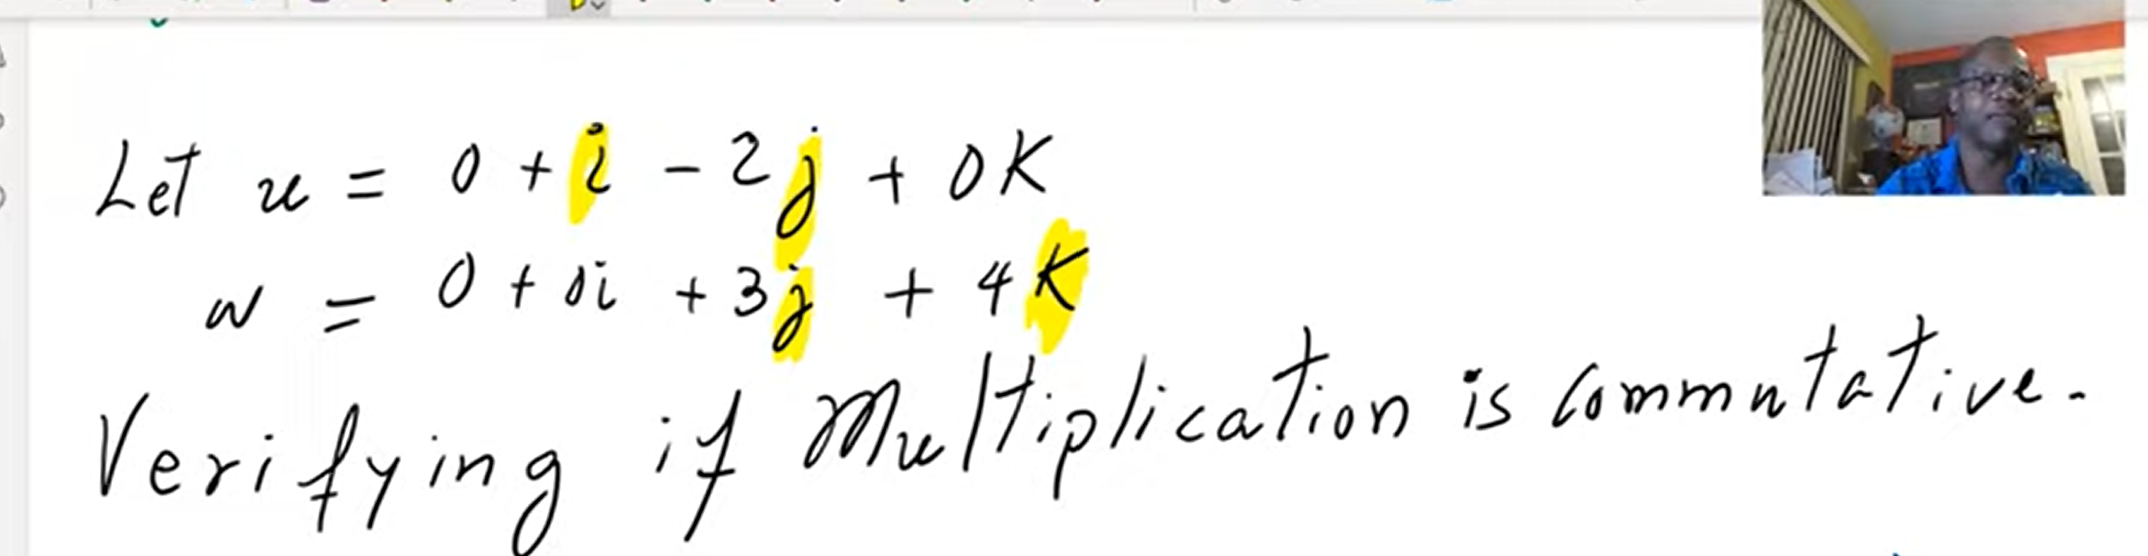 Let u = 0 + i - 2j + 0K
w = 0 + 0i + 3j + 4K
Verifying if Multiplication is commutative.